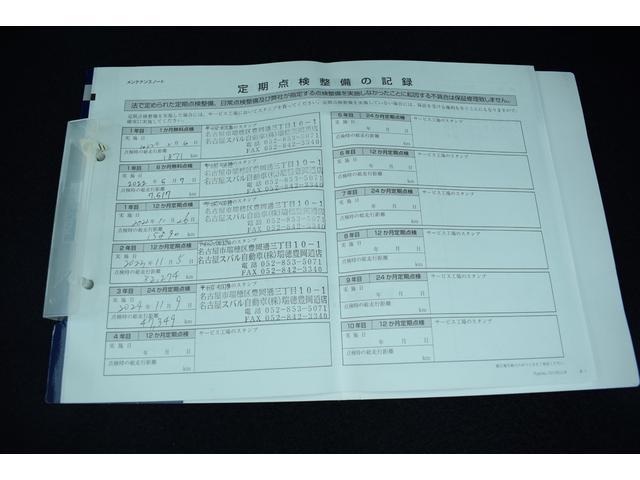 メンテナンスノート
定期点検整備の記録
法で定められた定期点検整備、日常点検整備及び弊社が指定する点検整備を実施しなかったことに起因する不具合は保証修理致しません。
1年目 1か月無料点検
実施日
点検時の総走行距離
1871 km
名古屋市瑞穂区豊岡通三丁目10-1
名古屋スバル自動車(株)瑞穂豊岡通店
電話 052-853-5071
FAX 052-842-3340
1年目 6か月無料点検
実施日
2022年5月7日
点検時の総走行距離
7,617 km
名古屋市瑞穂区豊岡通三丁目10-1
名古屋スバル自動車(株)瑞穂豊岡通店
電話 052-853-5071
FAX 052-842-3340
1年目 12か月定期点検
実施日
2022年11月26日
点検時の総走行距離
km
名古屋市瑞穂区豊岡通三丁目10-1
名古屋スバル自動車(株)瑞穂豊岡通店
電話 052-853-5071
FAX 052-842-3340
2年目 12か月定期点検
実施日
11月5日
点検時の総走行距離
32,274 km
名古屋市瑞穂区豊岡通三丁目10-1
名古屋スバル自動車(株)瑞穂豊岡通店
電話 052-853-5071
FAX 052-842-3340
3年目 24か月定期点検
実施日
2024年11月9日
点検時の総走行距離
47,349 km
名古屋市瑞穂区豊岡通三丁目10-1
名古屋スバル自動車(株)瑞穂豊岡通店
電話 052-853-5071
FAX 052-842-3340
4年目 12か月定期点検
サービス工場のスタンプ
実施日
年 月 日
点検時の総走行距離
km
5年目 24か月定期点検
サービス工場のスタンプ
実施日
年 月 日
点検時の総走行距離
km
6年目 12か月定期点検
サービス工場のスタンプ
実施日
年 月 日
点検時の総走行距離
km
7年目 24か月定期点検
サービス工場のスタンプ
実施日
年 月 日
点検時の総走行距離
km
8年目 12か月定期点検
サービス工場のスタンプ
実施日
年 月 日
点検時の総走行距離
km
9年目 24か月定期点検
サービス工場のスタンプ
実施日
年 月 日
点検時の総走行距離
km
10年目 12か月定期点検
サービス工場のスタンプ
実施日
年 月 日
点検時の総走行距離
km